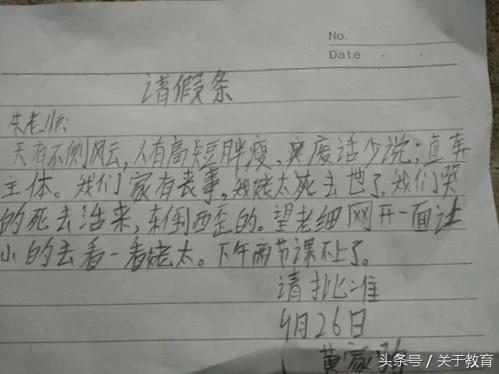 No.
Date
请假条
朱老师:
天有不侧风云,人有高短胖瘦,废话少说;直奔
主体。我们家有丧事,我姥太死去也了,我们哭
的死去活来,东倒西歪的。望老细网开一面让
小的去看一看姥太。下午两节课不上了。
请批准
9月26日
黄家
头条号 / 关于教育